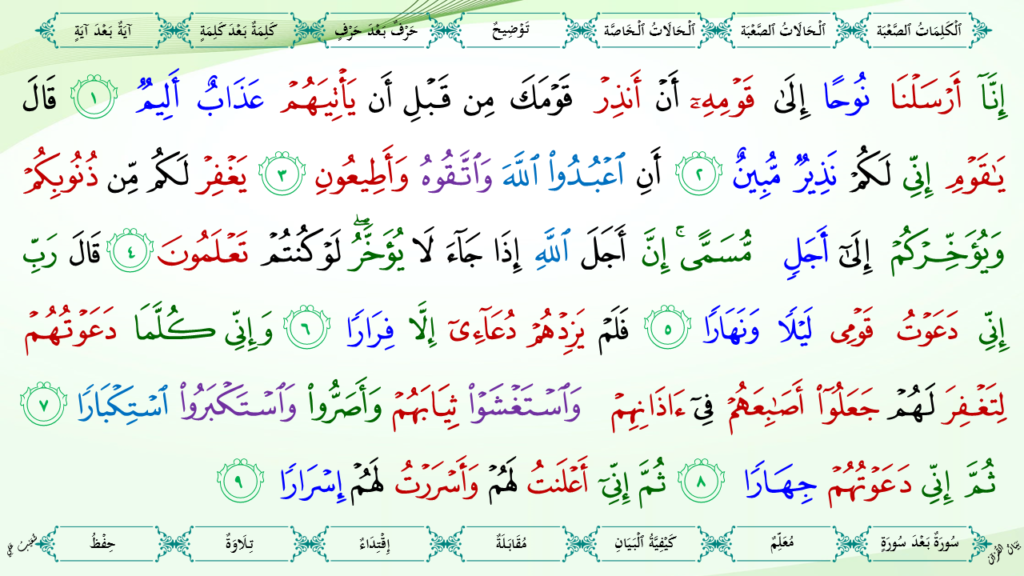 ٱلْكَلِمَاتُ ٱلصَّعْبَة ٱلْحَالَاتُ ٱلصَّعْبَة ٱلْحَالَاتُ ٱلْخَاصَّة تَوْضِيحٌ حَرْفٌ بَعْدَ حَرْفٍ كَلِمَةٌ بَعْدَ كَلِمَةٍ آيَةٌ بَعْدَ آيَةٍ
إِنَّآ أَرْسَلْنَا نُوحًا إِلَىٰ قَوْمِهِۦٓ أَنْ أَنذِرْ قَوْمَكَ مِن قَبْلِ أَن يَأْتِيَهُمْ عَذَابٌ أَلِيمٌ ١ قَالَ
يَٰقَوْمِ إِنِّى لَكُمْ نَذِيرٌ مُّبِينٌ ٢ أَنِ ٱعْبُدُوا۟ ٱللَّهَ وَٱتَّقُوهُ وَأَطِيعُونِ ٣ يَغْفِرْ لَكُم مِّن ذُنُوبِكُمْ
وَيُؤَخِّرْكُمْ إِلَىٰٓ أَجَلٍ مُّسَمًّى ۚ إِنَّ أَجَلَ ٱللَّهِ إِذَا جَآءَ لَا يُؤَخَّرُ ۖ لَوْ كُنتُمْ تَعْلَمُونَ ٤ قَالَ رَبِّ
إِنِّى دَعَوْتُ قَوْمِى لَيْلًا وَنَهَارًا ٥ فَلَمْ يَزِدْهُمْ دُعَآءِىٓ إِلَّا فِرَارًا ٦ وَإِنِّى كُلَّمَا دَعَوْتُهُمْ
لِتَغْفِرَ لَهُمْ جَعَلُوٓا۟ أَصَٰبِعَهُمْ فِىٓ ءَاذَانِهِمْ وَٱسْتَغْشَوْا۟ ثِيَابَهُمْ وَأَصَرُّوا۟ وَٱسْتَكْبَرُوا۟ ٱسْتِكْبَارًا ٧
ثُمَّ إِنِّى دَعَوْتُهُمْ جِهَارًا ٨ ثُمَّ إِنِّىٓ أَعْلَنتُ لَهُمْ وَأَسْرَرْتُ لَهُمْ إِسْرَارًا ٩
سُورَةٌ بَعْدَ سُورَةٍ مُعَلِّمٌ كَيْفِيَّةُ ٱلْبَيَانِ مُقَابَلَةٌ إِقْتِدَاءٌ تِلَاوَةٌ حِفْظٌ
بَيَانُ القُرْآن